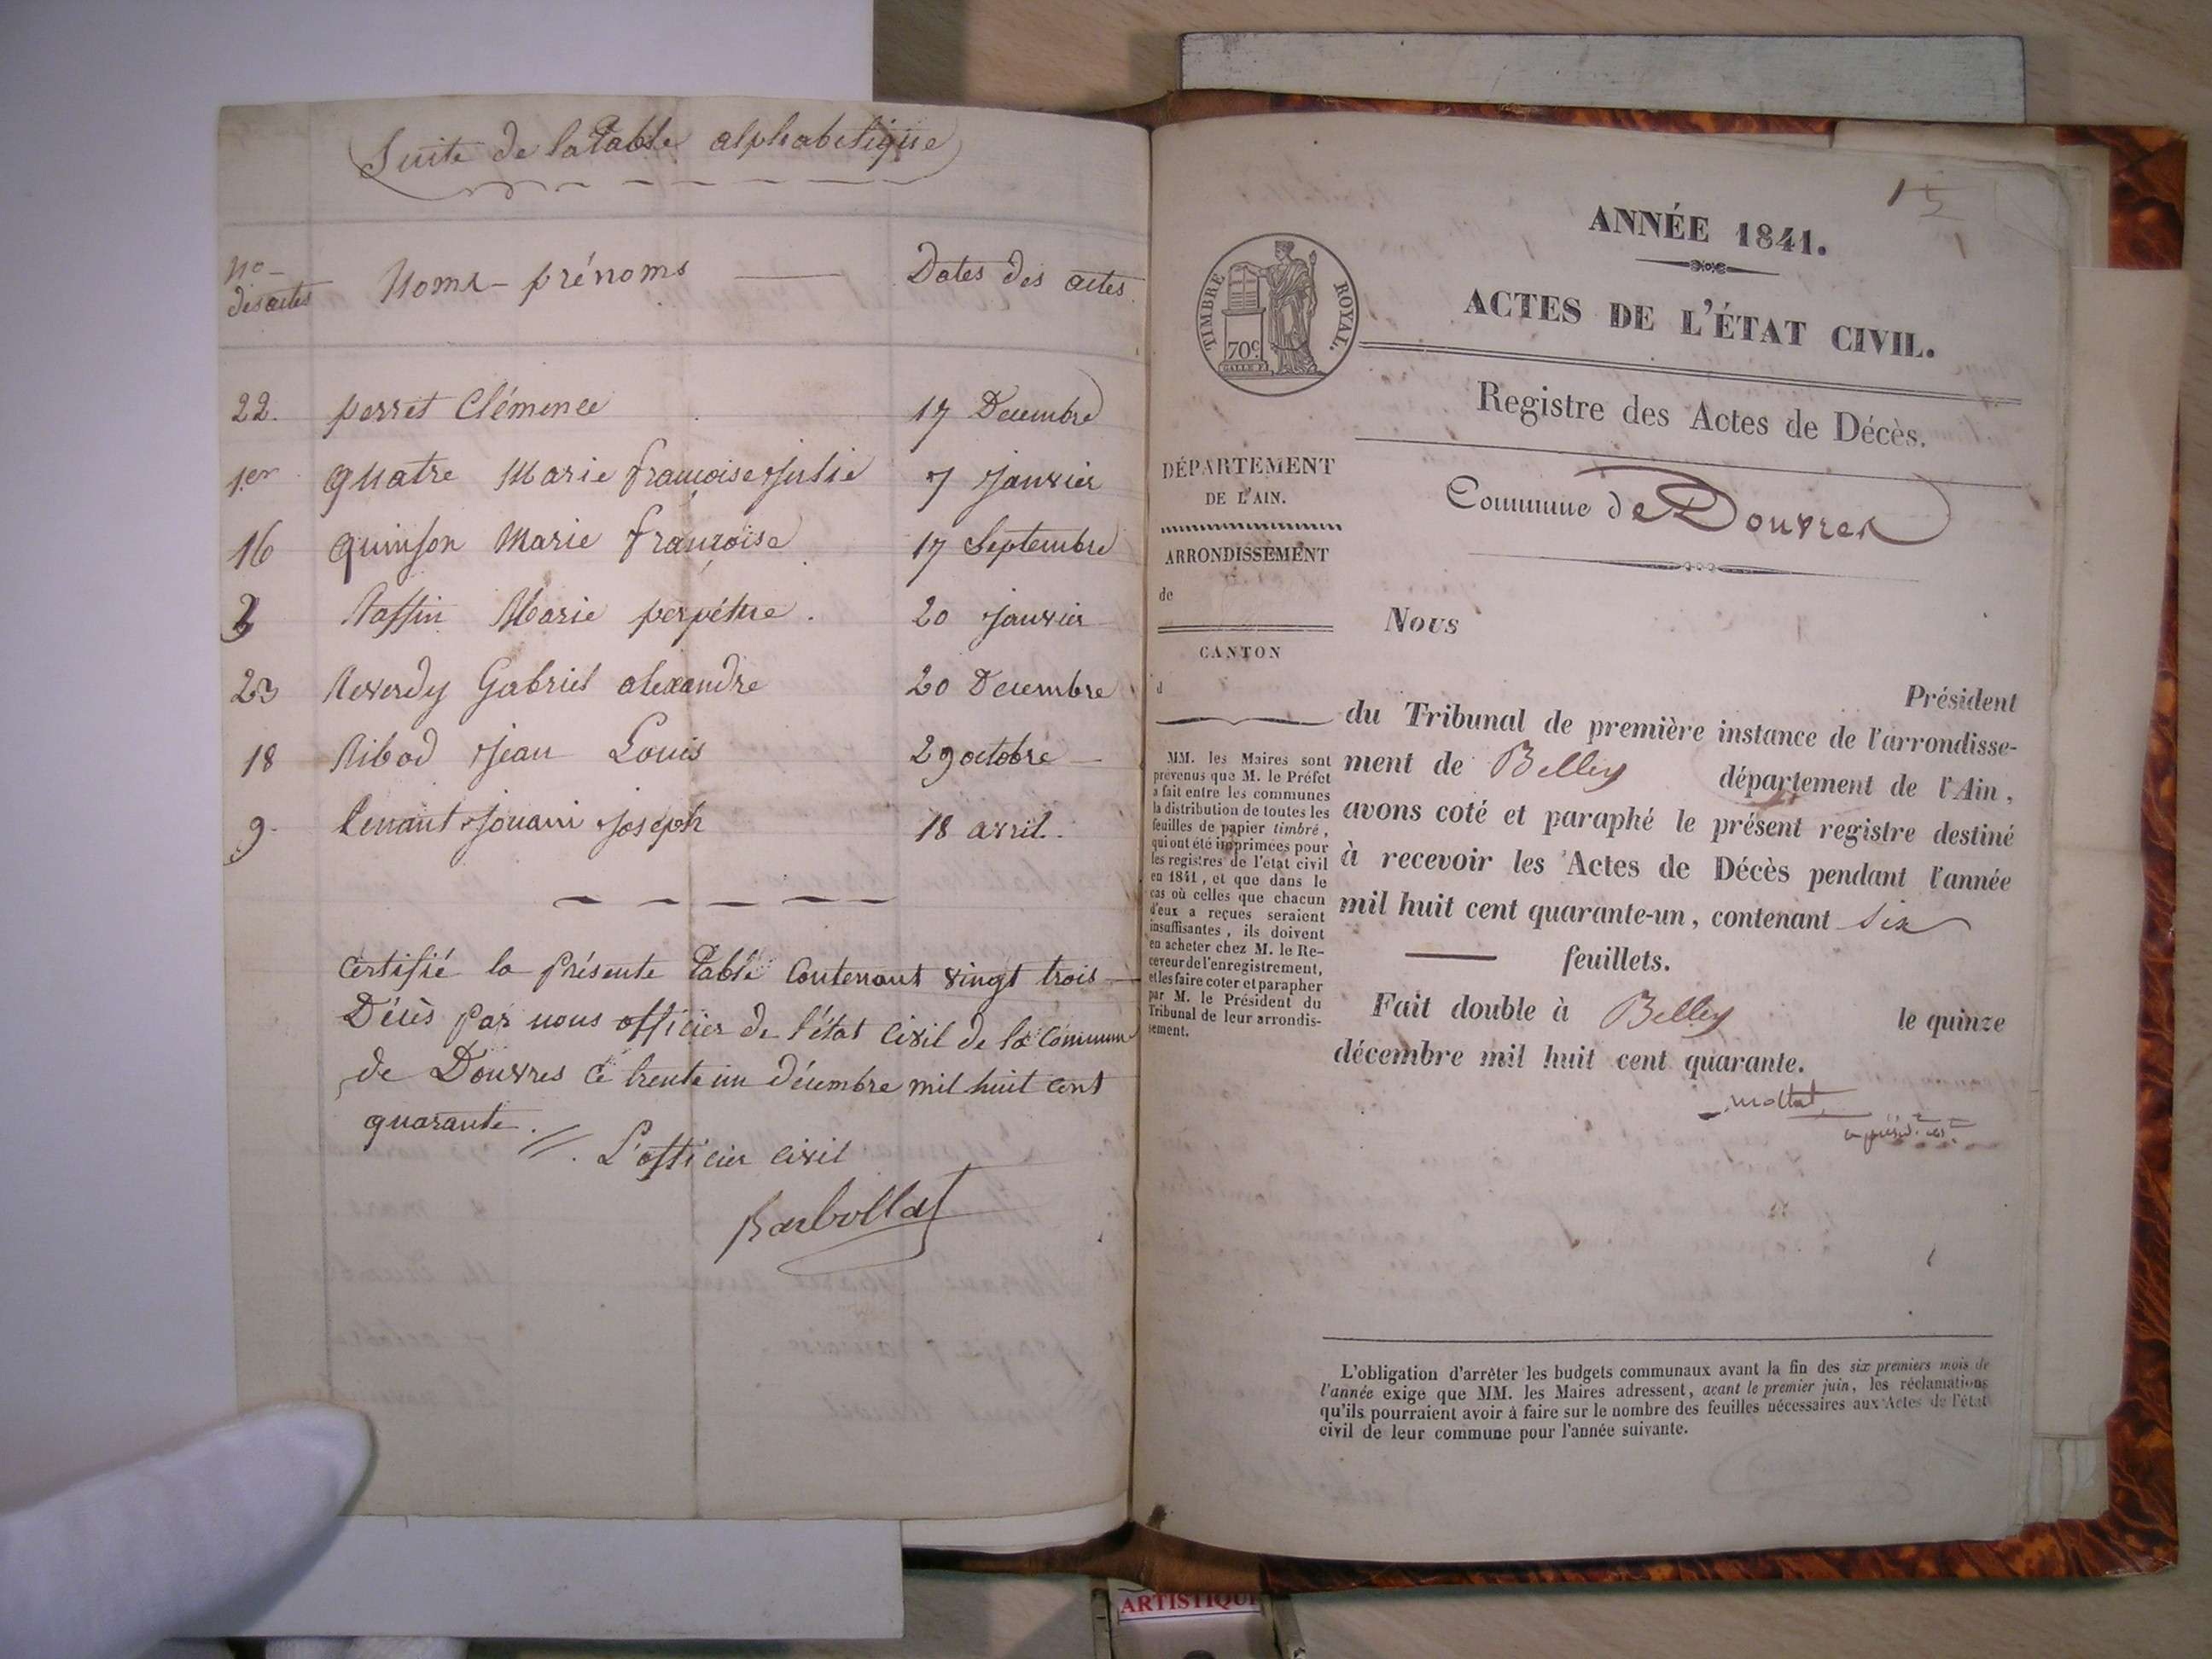 Suite de la Table alphabétique
No des actes Noms - prénoms Dates des actes
22. perret Clémence 17 Decembre
1er quatre Marie françoise Julie 7 Janvier
16 quinson Marie françoise 17 Septembre
2 Raffin Marie perpétue. 20 janvier
23 Reverdy Gabriel alexandre 20 Decembre
18 Ribod Jean Louis 29 octobre
9. tenant Joseph 18 avril.
Certifié la présente Table Contenant vingt trois
Décès par nous officier de l'état Civil de la Commune
de Douvres Ce trente un décembre mil huit cent
quarante.
L'officier civil
Barbollat
15
ANNÉE 1841.
ACTES DE L'ÉTAT CIVIL.
TIMBRE ROYAL.
70c
Registre des Actes de Décès.
Commune de Douvres
DÉPARTEMENT
DE L'AIN.
ARRONDISSEMENT
de
CANTON
d
MM. les Maires sont
prévenus que M. le Préfet
a fait entre les communes
la distribution de toutes les
feuilles de papier timbré,
qui ont été imprimées pour
les registres de l'état civil
en 1841, et que dans le
cas où celles que chacun
d'eux a reçues seraient
insuffisantes, ils doivent
en acheter chez M. le Re-
ceveur de l'enregistrement,
et les faire coter et parapher
par M. le Président du
Tribunal de leur arrondis-
sement.
Nous
Président
du Tribunal de première instance de l'arrondisse-
ment de Belley département de l'Ain,
avons coté et paraphé le présent registre destiné
à recevoir les Actes de Décès pendant l'année
mil huit cent quarante-un, contenant six
feuillets.
Fait double à Belley le quinze
décembre mil huit cent quarante.
L'obligation d'arrêter les budgets communaux avant la fin des six premiers mois de
l'année exige que MM. les Maires adressent, avant le premier juin, les réclamations
qu'ils pourraient avoir à faire sur le nombre des feuilles nécessaires aux Actes de l'état
civil de leur commune pour l'année suivante.